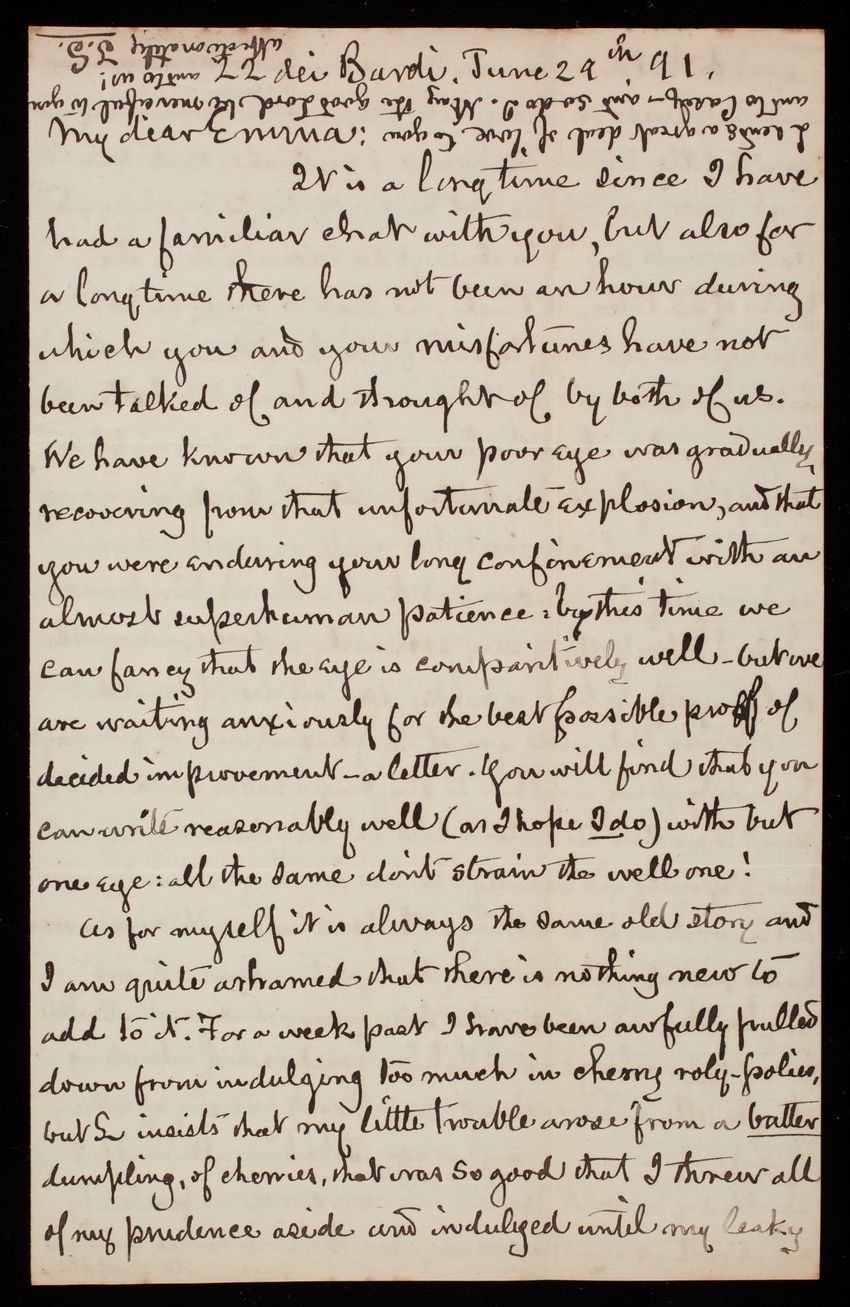 22 dei Bardi. June 29th 91.
My dear Emma:
It is a long time since I have
had a familiar chat with you, but also for
a long time there has not been an hour during
which you and your misfortunes have not
been talked of and thought of by both of us.
We have known that your poor eye was gradually
recovering from that unfortunate explosion, and that
you were enduring your long confinement with an
almost superhuman patience: by this time we
can fancy that the eye is comparitively well - but we
are waiting anxiously for the best possible proof of
decided improvement - a letter. You will find that you
can write reasonably well (as I hope I do) with but
one eye: all the same don't strain the well one!
As for myself it is always the same old story and
I am quite ashamed that there is nothing new to
add to it. For a week past I have been awfully pulled
down from indulging too much in cherry roly-polies,
but L insists that my little trouble arose from a batter
dumpling, of cherries, that was so good that I threw all
of my prudence aside and indulged until my leaky
L sends a great deal of love to you
and to Carty - and so do I. May the good Lord be merciful to you
and to us!
affectionately T.S.